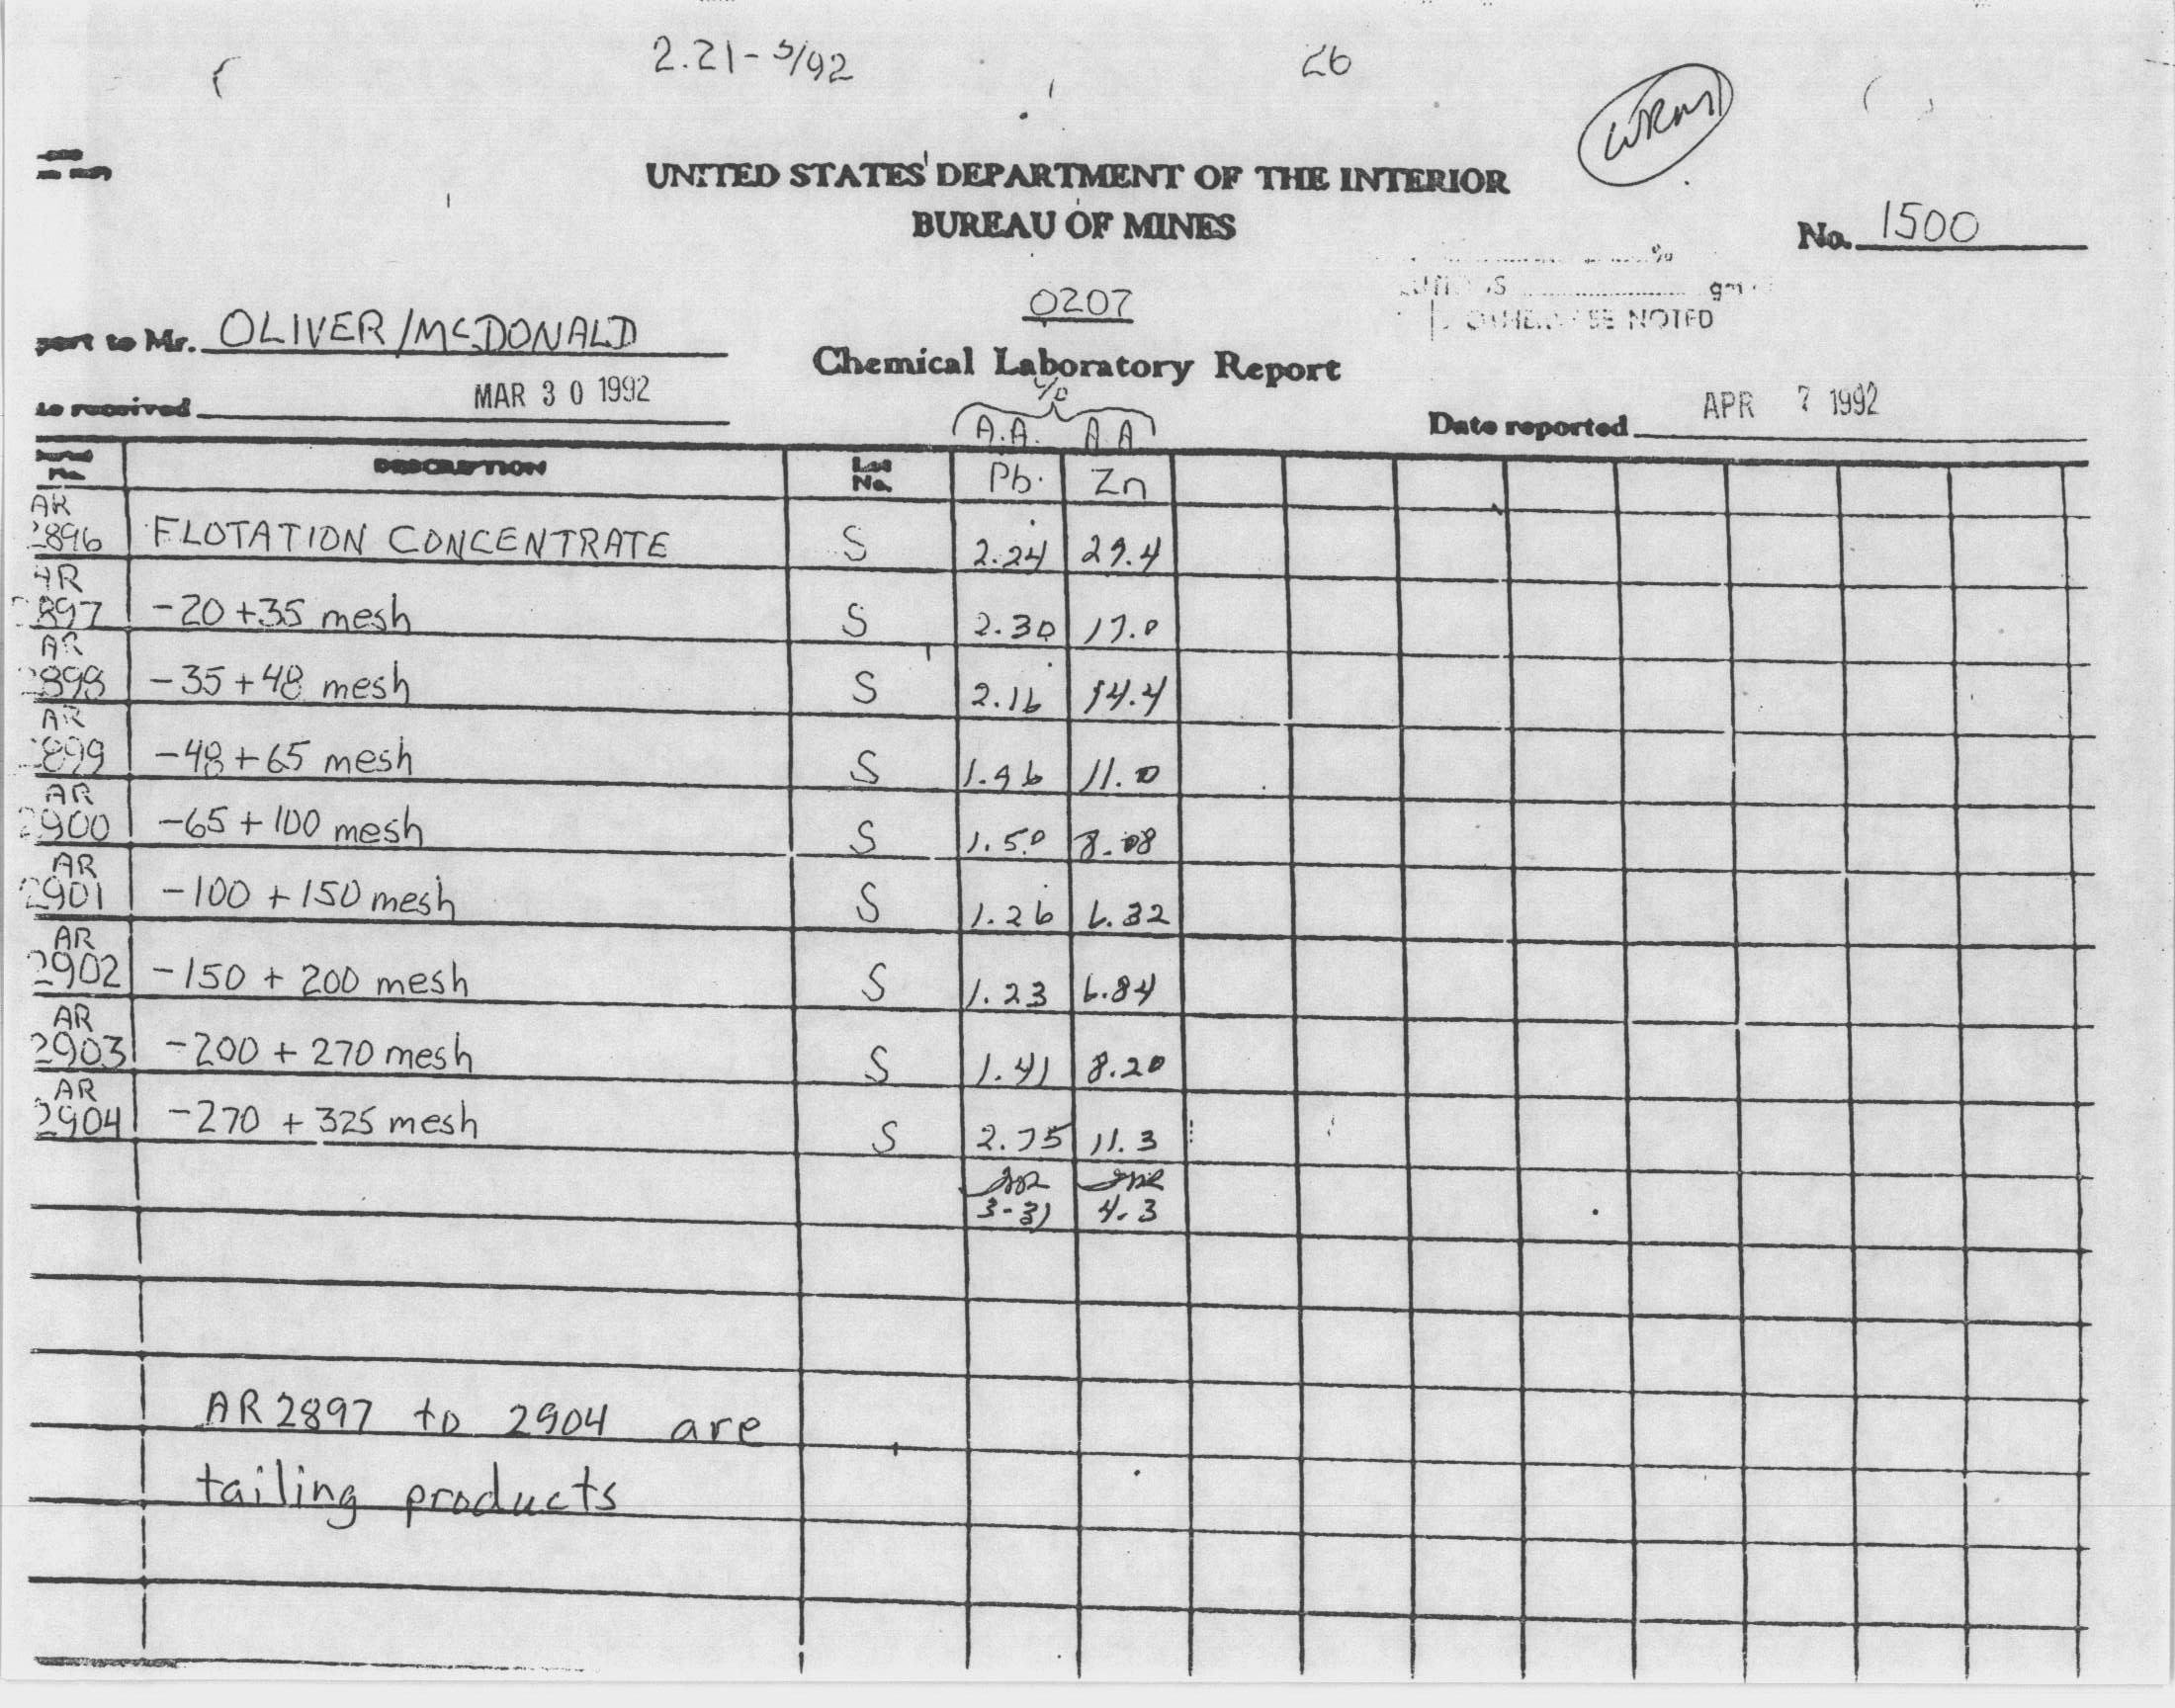 2.21-5/92 26
WRM
UNITED STATES DEPARTMENT OF THE INTERIOR
BUREAU OF MINES
No. 1500
0207
gm
OTHERWISE NOTED
port to Mr. OLIVER/MCDONALD
Chemical Laboratory Report
received MAR 30 1992
%
Date reported APR 7 1992
A.A. A A
No. DESCRIPTION Lot No. Pb. Zn
AR
2896 FLOTATION CONCENTRATE S 2.24 29.4
AR
2897 -20 +35 mesh S 2.30 17.0
AR
2898 -35 +48 mesh S 2.16 14.4
AR
2899 -48 +65 mesh S 1.96 11.0
AR
2900 -65 + 100 mesh S 1.50 8.08
AR
2901 -100 + 150 mesh S 1.26 6.32
AR
2902 -150 + 200 mesh S 1.23 6.84
AR
2903 -200 + 270 mesh S 1.41 8.20
AR
2904 -270 + 325 mesh S 2.75 11.3
3-31 4.3
AR 2897 to 2904 are
tailing products